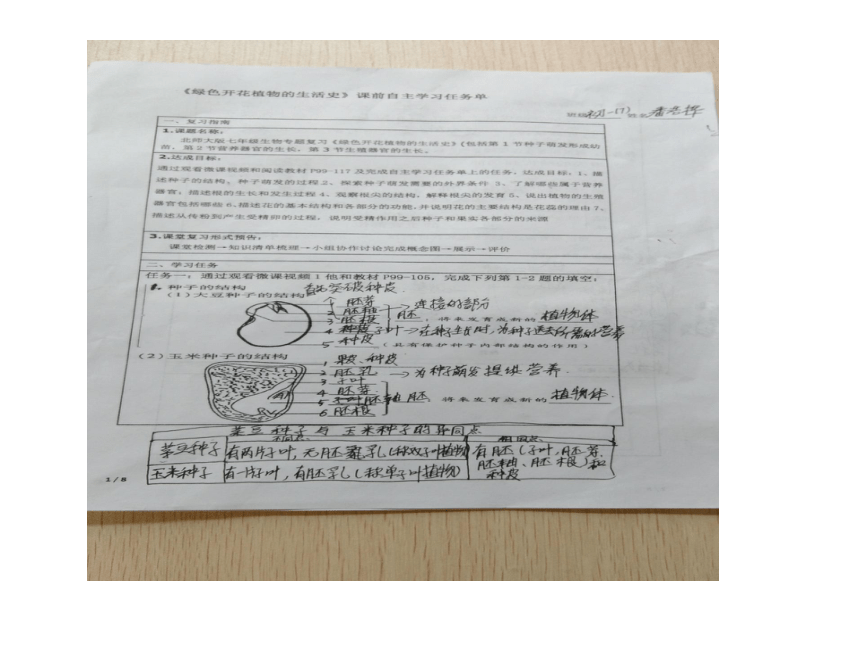 《绿色开花植物的生活史》课前自主学习任务单
班级 初一(7) 姓名
一、复习指南
1.课题名称：
北师大版七年级生物专题复习《绿色开花植物的生活史》(包括第1节种子萌发形成幼
苗，第2节营养器官的生长，第3节生殖器官的生长。
2.达成目标：
通过观看微课视频和阅读教材P99-117及完成自主学习任务单上的任务，达成目标：1、描
述种子的结构、种子萌发的过程2、探索种子萌发需要的外界条件 3、了解哪些属于营养
器官；描述根的生长和发生过程4、观察根尖的结构，解释根尖的发育5、说出植物的生殖
器官包括哪些6、描述花的基本结构和各部分的功能，并说明花的主要结构是花蕊的理由7、
描述从传粉到产生受精卵的过程；说明受精作用之后种子和果实各部分的来源
3.课堂复习形式预告：
课堂检测→知识清单梳理→小组协作讨论完成概念图→展示→评价
二、学习任务
任务一：通过观看微课视频1他和教材P99-105，完成下列第1-2题的填空：
1. 种子的结构 突破种皮
(1)大豆种子的结构
1 胚芽
2 胚轴 →连接的部分
3 胚根 胚 ，将来发育成新的 植物体
4 子叶→
5 种皮 (具有保护种子内部结构的作用)
(2)玉米种子的结构
1 果皮、种皮
2 胚乳 →为种子萌发提供营养.
3 子叶
4 胚芽
5 胚轴 胚 将来发育成新的 植物体.
6 胚根
菜豆种子与玉米种子的异同点
不同点 相同点
菜豆种子 有两片子叶，无胚乳(称双子叶植物) 有胚(子叶，胚芽、
胚轴、胚根)和
种皮
玉米种子 有一片子叶，有胚乳(称单子叶植物)
1/8